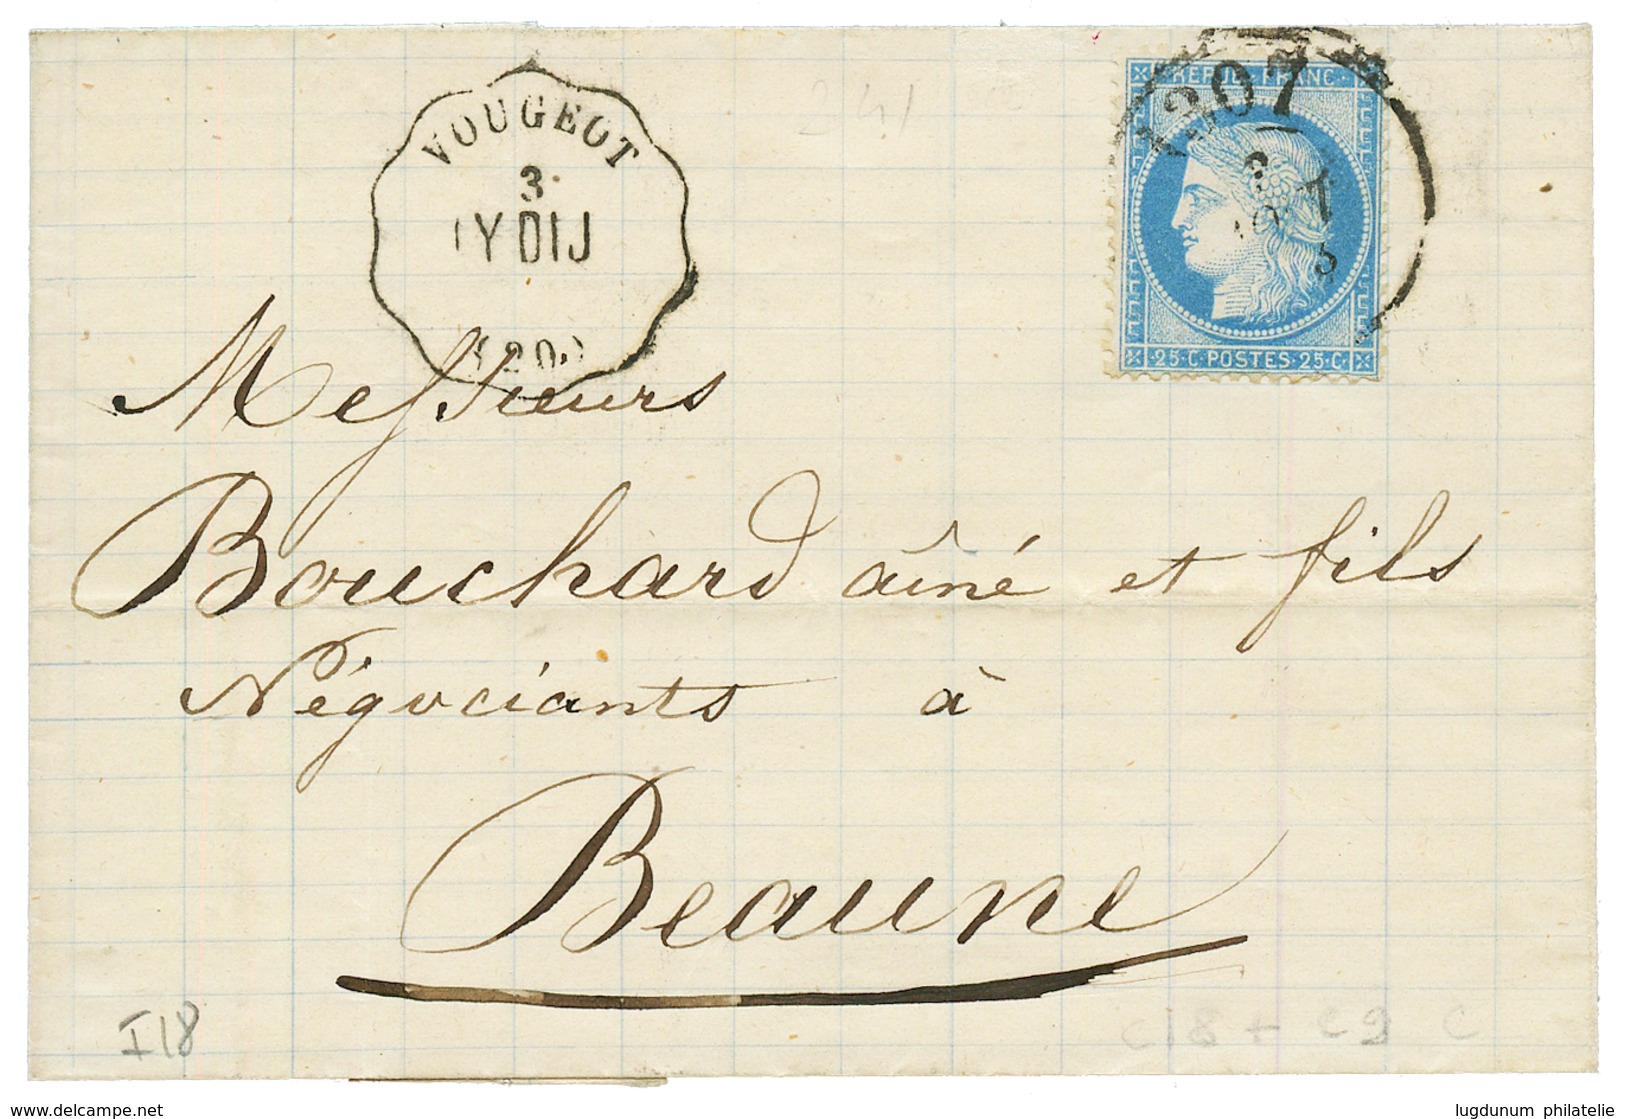 VOUGEOT
3
LY DIJ
(20)
1307
REPUB. FRANC.
25·C·POSTES·25·C
Messieurs
Bouchard aîné et fils
Négociants à
Beaune
I18
C18 + C9 C
www.delcampe.net
lugdunum philatelie